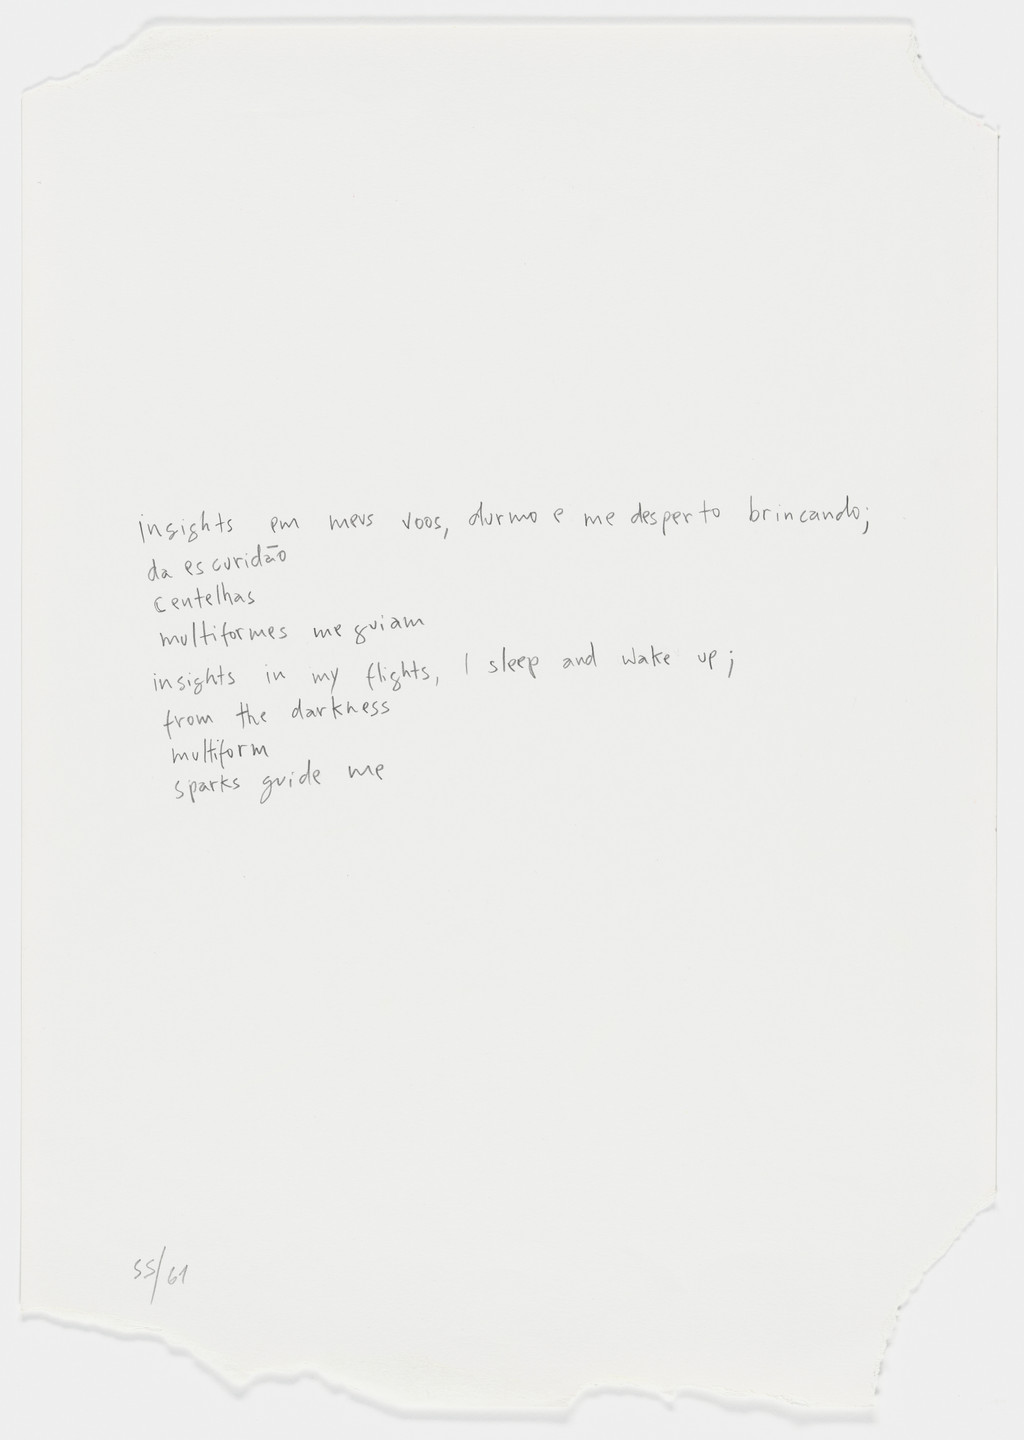 insights em meus voos, durmo e me desperto brincando;
da escuridão
centelhas
multiformes me guiam
insights in my flights, I sleep and wake up;
from the darkness
multiform
sparks guide me
55/61